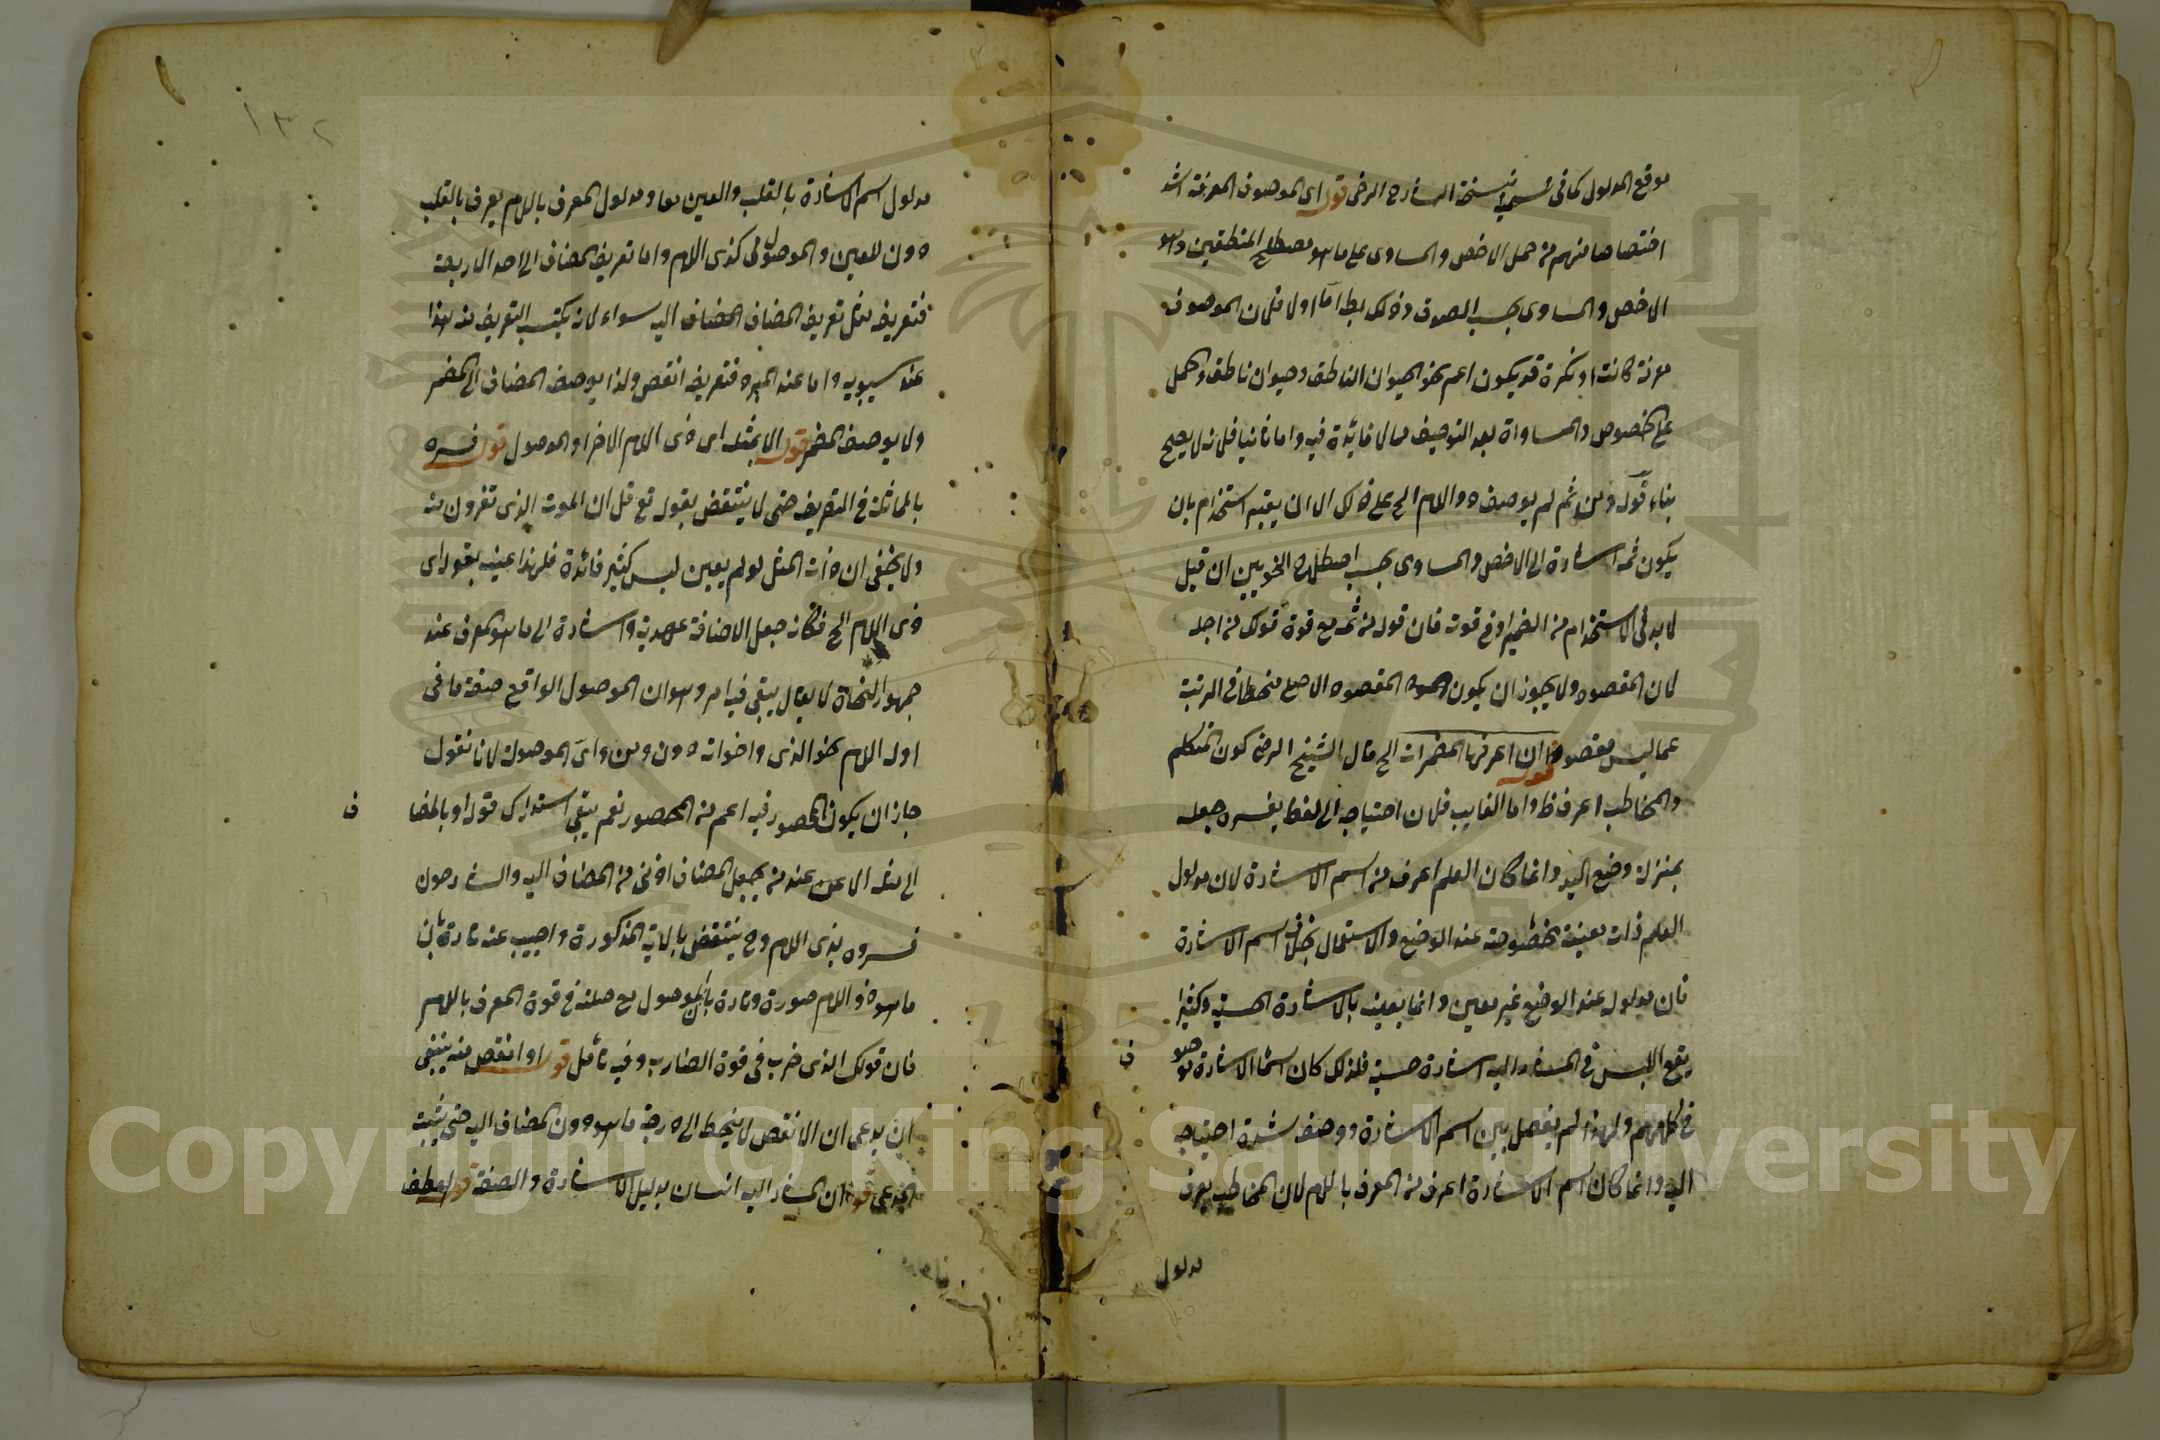 موقع المدلول كما في نسخة الشارح الرضى قوله اى الموصوف المعرفة اشد
اختصاصا منهم من حمل الاخص والمساوى على ما هو مصطلح المنطقيين وهو
الاخص والمساوى بحسب الصدق وذلك بط اما اولا فلان الموصوف
معرفة كانت او نكرة قد يكون اعم نحو الحيوان الناطق وحيوان ناطق والحمل
على الخصوص والمساواة بعد التوصيف مما لا فائدة فيه واما ثانيا فلانه لا يصح
بناء قوله ومن ثم لم يوصف ذو اللام الخ على ذلك الا ان يعتبر استخدام بان
يكون ثمه اشارة الى الاخص والمساوى بحسب اصطلاح النحويين ان قيل
لا بد فى الاستخدام من الضمير او فى قوته فان قوله من ثمه مع قوة قولك من اجله
لان المقصود ولا يجوز ان يكون المقصود الاصلى منحطا فى المرتبة
عما ليس مقصود قوله ان اعرفها المضمرات الخ قال الشيخ الرضى كون المتكلم
والمخاطب اعرف ظ واما الغايب فلان احتياجه الى لفظ يفسره جعله
بمنزلة وضع اليد وانما كان العلم اعرف من اسم الاشارة لان مدلول
العلم ذات معينة مخصوصة عند الوضع والاستعمال بخلاف اسم الاشارة
فان مدلوله عند الوضع غير معين وانما يعينه بالاشارة الحسية وكثيرا
يقع اللبس فى المشار اليه اشارة حسية فلذلك كان اسماء الاشارة موصوفة
فى كلامهم ولهذا لم يفصل بين اسم الاشارة ووصفه لشدة احتياجه
اليه وانما كان اسم الاشارة اعرف من المعرف باللام لان المخاطب يعرف
مدلول
١٣٢
مدلول اسم الاشارة بالقلب والعين معا ومدلول المعرف باللام يعرف بالقلب
دون العين والموصول كذى اللام واما تعريف المضاف الى احد الاربعة
فتعريفه مثل تعريف المضاف اليه سواء لانه يكتسب التعريف منه هذا
عند سيبويه واما عند المبرد فتعريفه انقص ولذا يوصف المضاف الى المضمر
ولا يوصف المضمر قوله الا بمثله اى ذى اللام الاخر او الموصول قوله فسره
بالمماثلة فى التعريف حتى لا ينتقض بقوله تع قل ان الموت الذى تفرون منه
ولا يخفى ان ذات المثل لو لم يعين ليس كثير فائدة فلهذا عينه بقوله اى
ذى اللام الخ فكانه جعل الاضافة عهدية واشارة الى ما هو المعرف عند
جمهور النحاة لا يقال يبقى فيه امر وهو ان الموصول الواقع صفة ما فى
اوله اللام نحو الذى واخواته دون ومن واى الموصولة لانا نقول
جاز ان يكون المحصور فيه اعم من المحصور نعم يبقى استدراك قوله او بالمضا
ف
الى مثله الا عن عند من يجعل المضاف ادنى من المضاف اليه والشارحون
فسروه بذى اللام وح ينتقض بالاية المذكورة واجيب عنه تارة بان
ما هو ذو اللام صورة وتارة بان الموصول مع صلته فى قوة المعرف باللام
فان قولك الذى ضرب فى قوة الضارب وفيه تأمل قوله او انقص منه ينبغى
ان يدعى ان الانقص لا ينحط الى درجة ما هو دون المضاف اليه حتى يثبت
المدعى قوله ان المشار اليه انسان بدليل الاشارة والصفة قوله لعطف